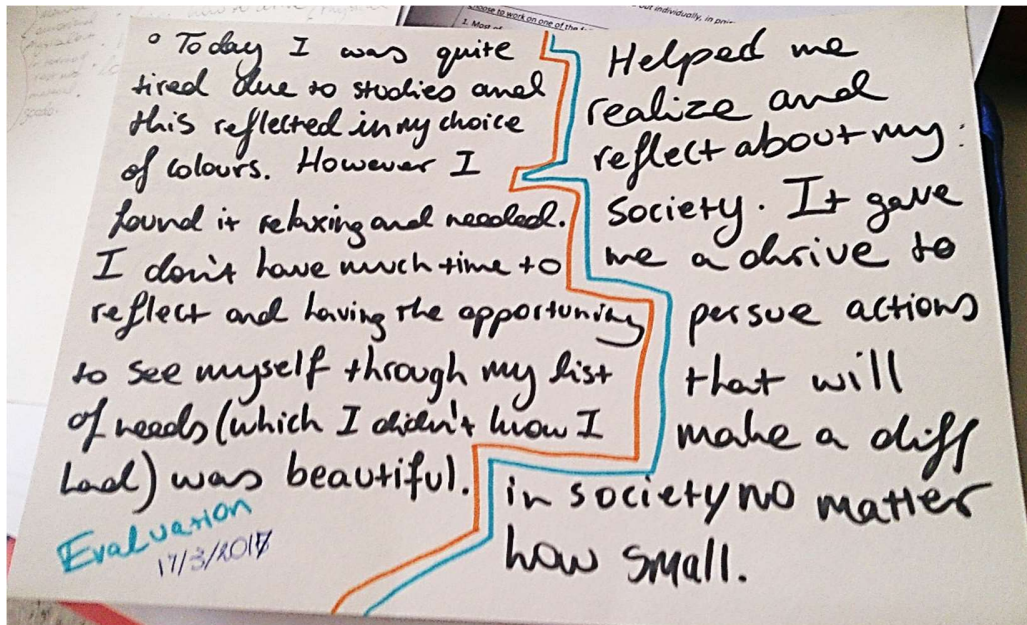 ° Today I was quite
tired due to studies and
this reflected in my choice
of colours. However I
found it relaxing and needed.
I don't have much time to
reflect and having the opportunity
to see myself through my list
of needs (which I didn't know I
had) was beautiful.
Evaluation
17/3/2017
Helped me
realize and
reflect about my:
society. It gave
me a drive to
persue actions
that will
make a diff
in society no matter
how small.